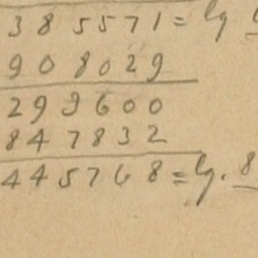 385571 = lg
908029
293600
847832
445768 = lg. 8